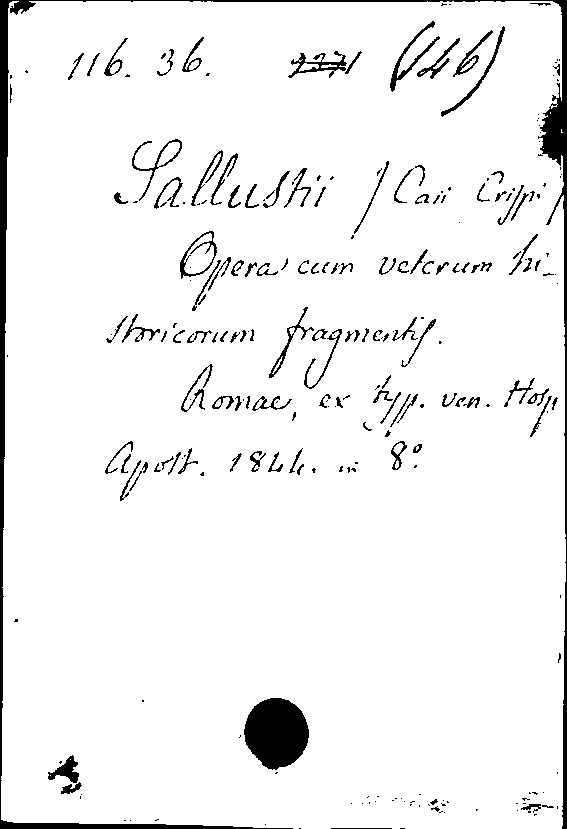 116. 36. 2371 (146)
Sallustii / Caii Crispi /
Opera cum veterum hi-
storicorum fragmentis.
Romae, ex typ. ven. Hosp
Apost. 1844. in 8º.